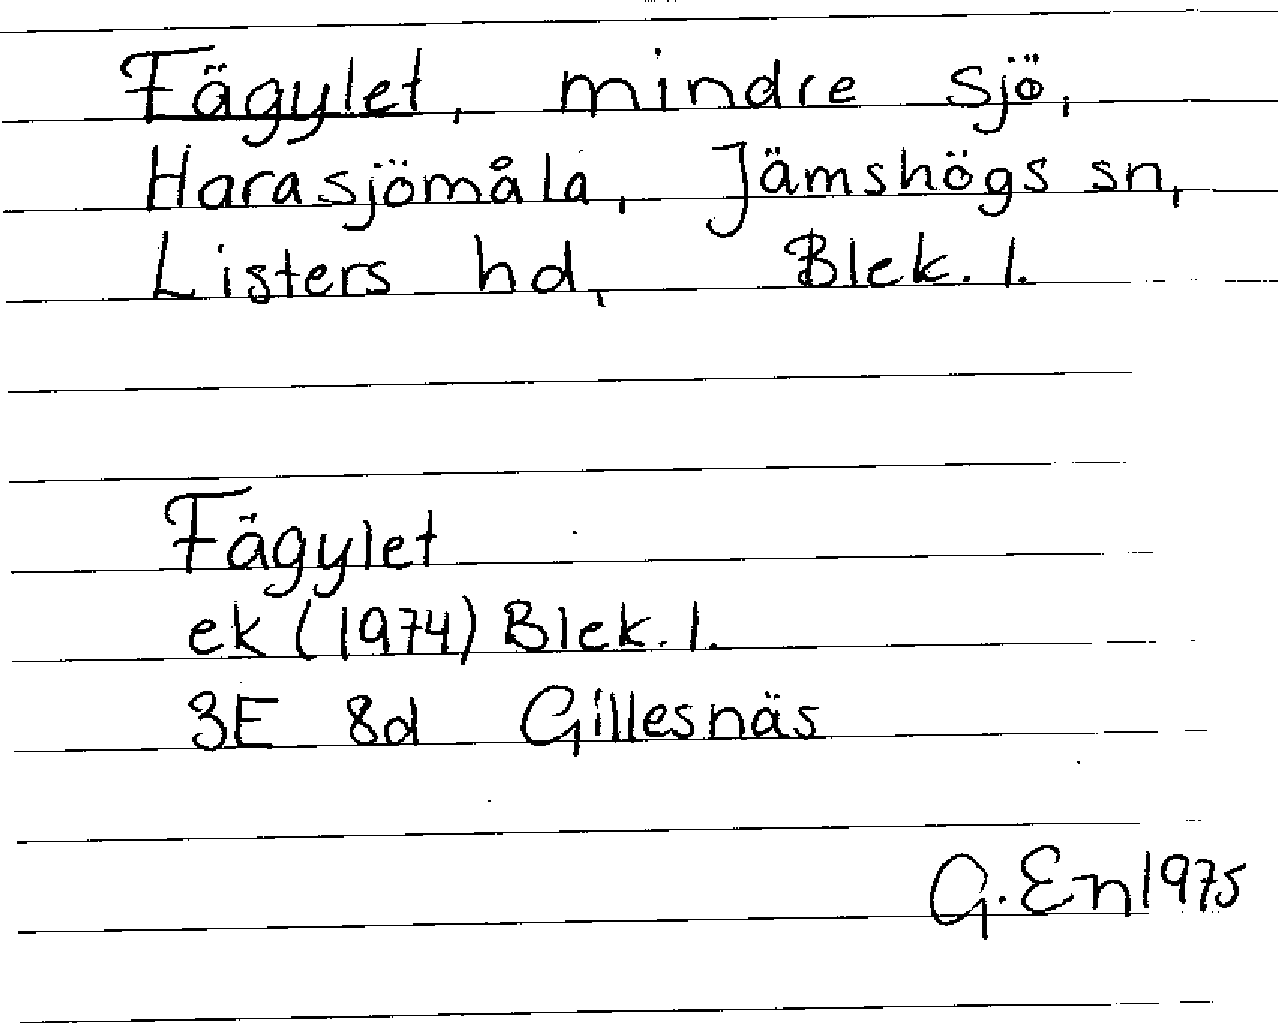 Fägylet, mindre sjö,
Harasjömåla, Jämshögs sn,
Listers hd, Blek. l.
Fägylet
ek (1974) Blek. l.
3E 8d Gillesnäs
G. En 1975